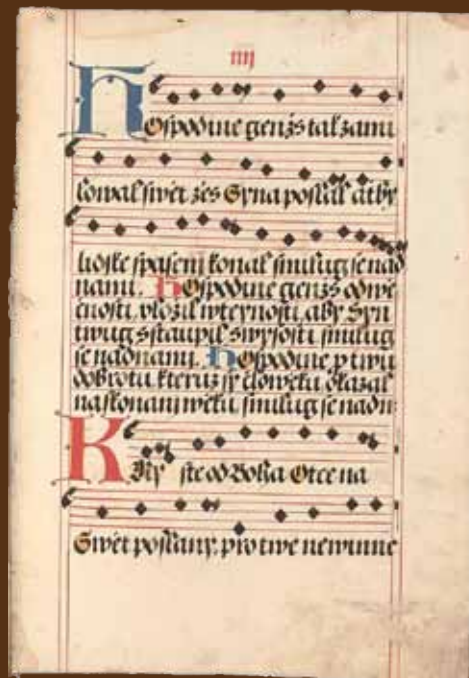 iiij
Hospodine genžs tak zami
lowal swět žes Syna poslal aťby
lidské spasenj konal smilug se nad
nami. Hospodine genžs od wě
čnosti vložil w teynosti, aby Syn
twug sstaupil s wysosti smilug
se nad nami. Hospodine p twu
dobrotu kteruž sy člowěku okazal
na skonanj wěku smilug se nadn:
Kristе od Boha Otce na
Swět poslany, pro twe newinne